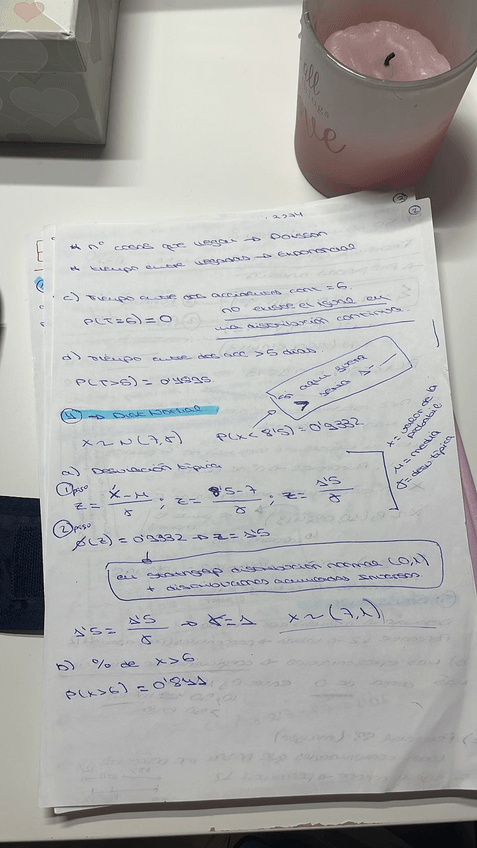 * nº coches que llegan → Poisson
* tiempo entre llegadas → exponencial
c) Tiempo entre dos accidentes cont. = 6.
P(T=6) = 0
no existe el igual en
una distribución continua.
d) Tiempo entre dos acc > 5 días.
→ Dist Normal
si aquí fuera
> sería 1-
X ~ N(7,σ)
P(X < 8'5) = 0'9332
x = valor de la
probabil.
μ = media
σ = desv típica
a) Desviación típica
① paso
z = x-μ/σ ; z = 8'5-7/σ ; z = 1'5/σ
② paso
φ(z) = 0'9332 → z = 1'5
en statgrap distribución normal (0,1)
+ distribuciones acumuladas inversas
1'5 = 1'5/σ → σ = 1 X ~ (7,1)
b) % de x>6
P(x>6) = 0'841